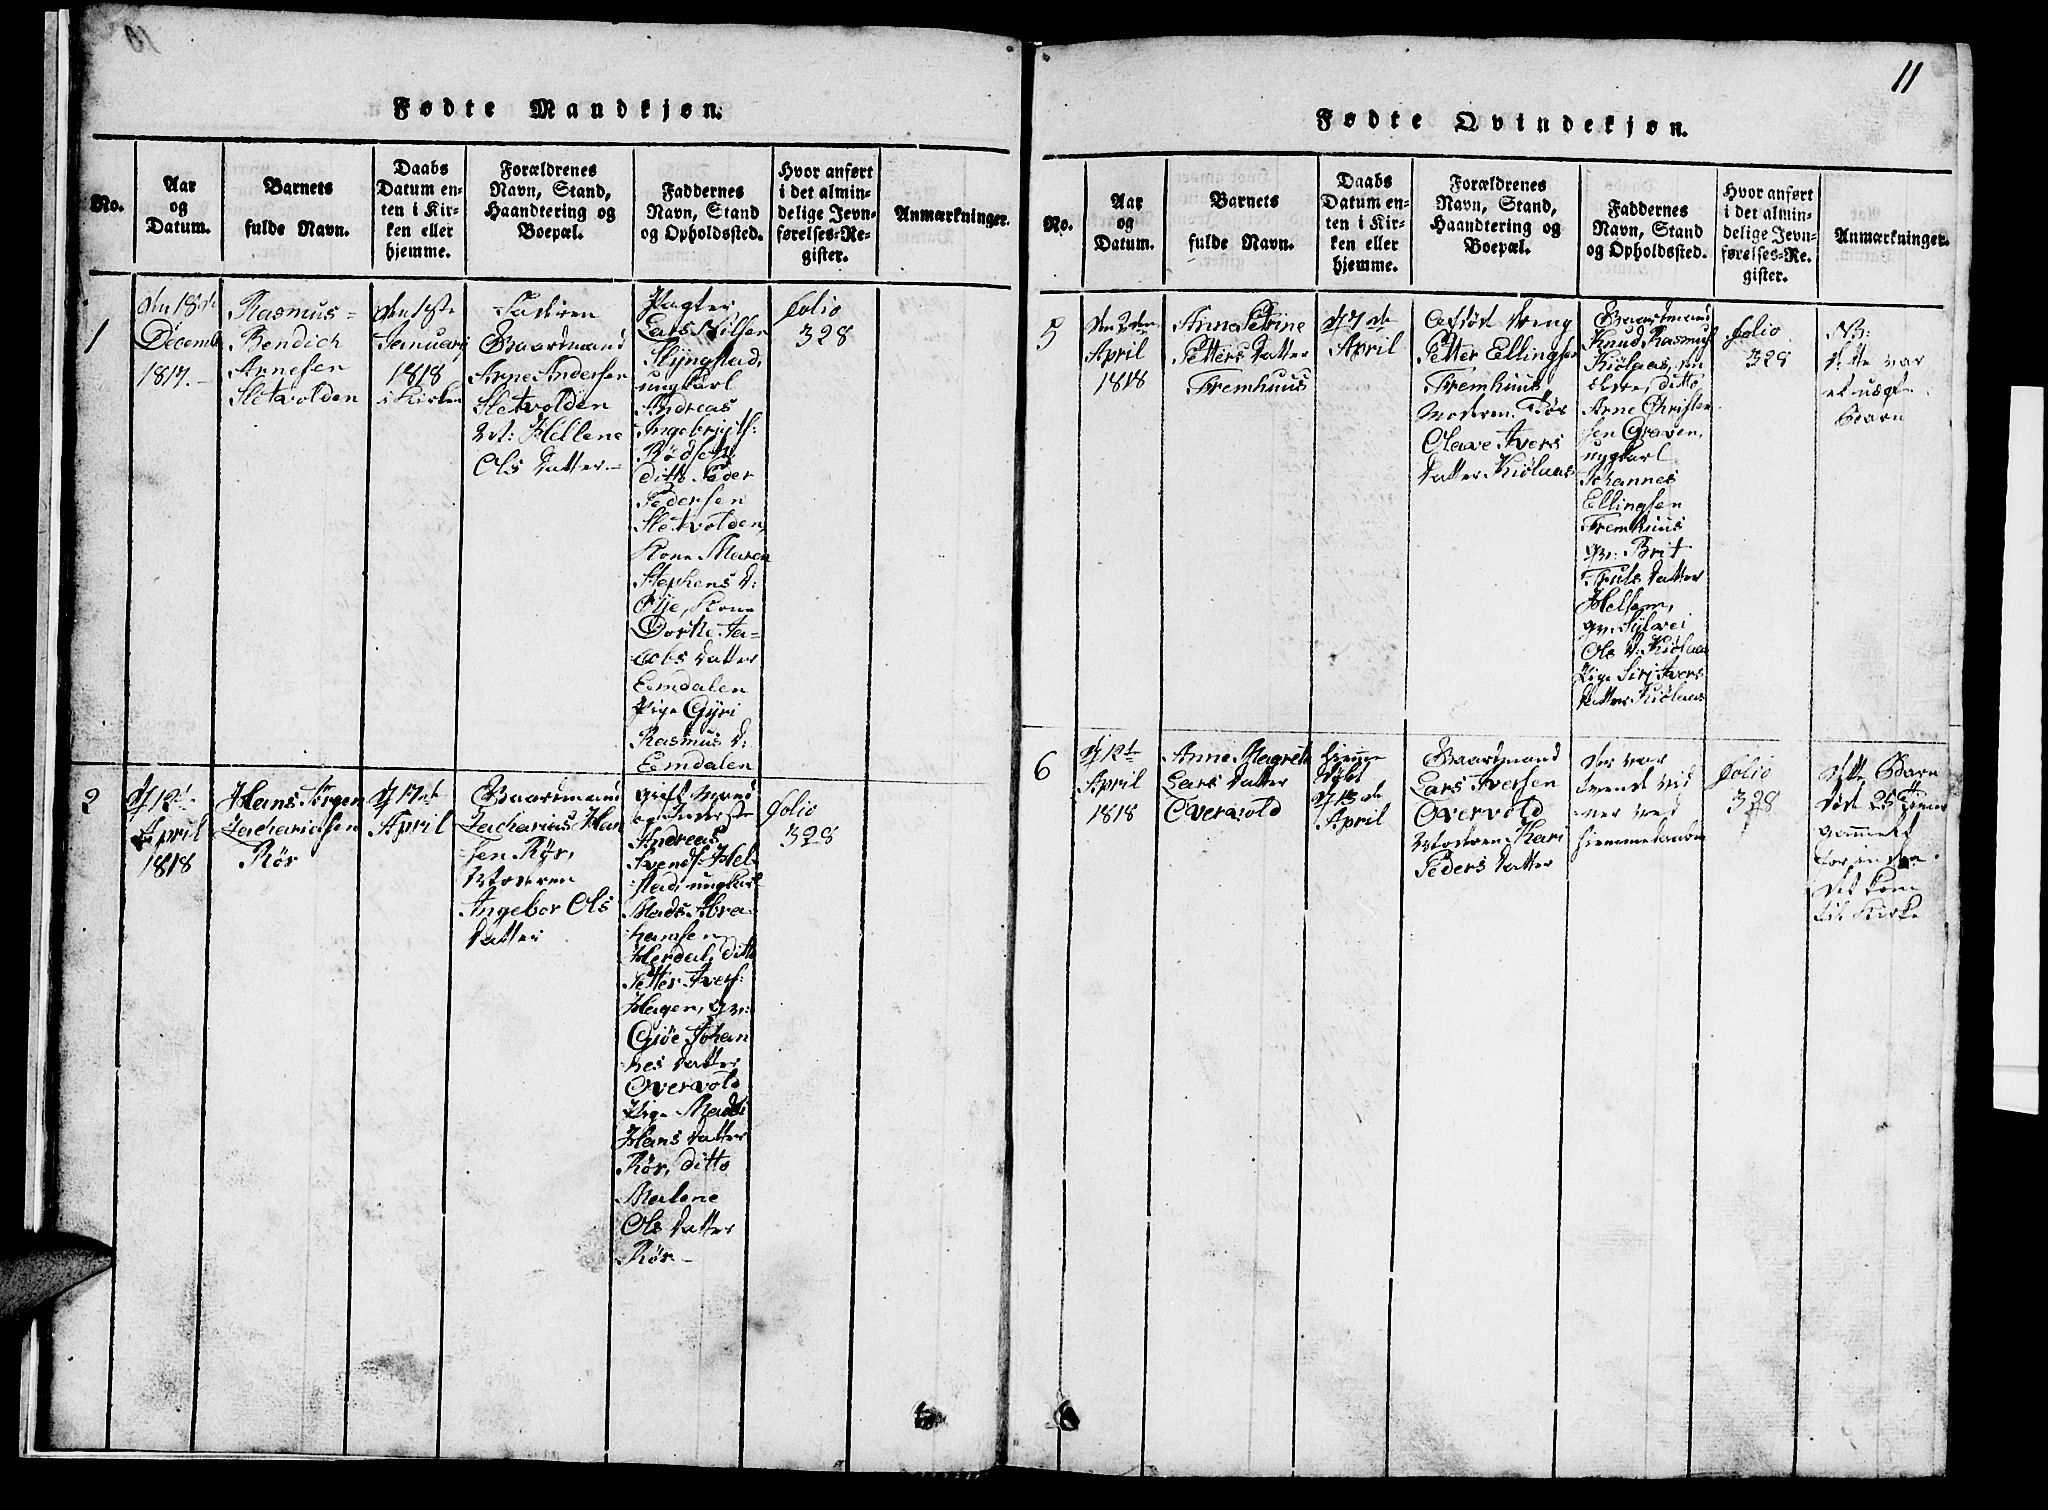 Fødte Mandkjøn.
No.
Aar
og
Datum.
Barnets
fulde Navn.
Daabs
Datum en-
ten i Kir-
ken eller
hjemme.
Forældrenes
Navn, Stand,
Haandtering og
Boepæl.
Faddernes
Navn, Stand
og Opholdssted.
Hvor anført
i det almin-
delige Jevn-
førelses-Re-
gister.
Anmærkninger.
1
den 18de
Decemb
1817.-
Rasmus-
Bendich
Arnesen
Sletvolden
den 1ste
Januarj
1818
i Kirken
Faderen
Gaardmand
Arne Andersen
Sletvolden
M: Hellene
Ols Datter.-
Lars Nilsen
Slyngstad,
ungkarl
Andreas
Ingebrigts:
Rødset,
ditto Peder
Pedersen
Sletvolden,
Kone Maren
Stephens D:
Øye, Kone
Dorthe Ja-
cobs Datter
Eemdalen
Pige Gyri
Rasmus D:
Eemdalen
Folio
328
2
D 12t
April
1818
Hans Jørgen
Zachariasen
Rør
D 17de
April
Gaardmand
Zacharias Han
sen Rør,
Moderen
Ingebor Ols
Datter
gift Mand
Andreas
Svends: Hel-
stad, ungkarl
Mads Abra-
hamsen
Herdal, ditto
Petter Ivers:
Hagen, gv:
Gjøe Johan
nes Datter
Overvold
Pige Madsi
Hans Datter
Rør, ditto
Malene
Ols Datter
Rør-
Folio
328
11
Fødte Qvindekjøn.
No.
Aar
og
Datum.
Barnets
fulde Navn.
Daabs
Datum en-
ten i Kir-
ken eller
hjemme.
Forældrenes
Navn, Stand,
Haandtering og
Boepæl.
Faddernes
Navn, Stand
og Opholdssted.
Hvor anført
i det almin-
delige Jevn-
førelses-Re-
gister.
Anmærkninger.
5
den 2den
April
1818
Anne Petrine
Petters Datter
Fremhuus
D 7de
April
Petter Ellingsen
Fremhuus
Moderen
Olave Ivers
Datter Kiølaas
Gaardmand
Knud Rasmus
Kiølaas,
ditto
Arne Christen
sen Graven,
ungkarl
Johannes
Ellingsen
Fremhuus
gv: Brit
Truls Datter
Helsem,
gv: Sylvei
Ols D: Kiølaas
Pige Sirj Ivers
Datter Kiølaas
Folio
328
NB:
dette var
et uægte
Barn
6
D 12t
April
1818
Anne Magrete
Lars Datter
Overvold
hiemme
døbt
D 13de
April
Gaardmand
Lars Iversen
Overvold
Moderen Kari
Peders Datter
der var
tvende vid
ner ved
hiemmedaaben
Folio
328
dette Barn
døde 25 Timer
gammelt
førinden
det kom
til Kirke